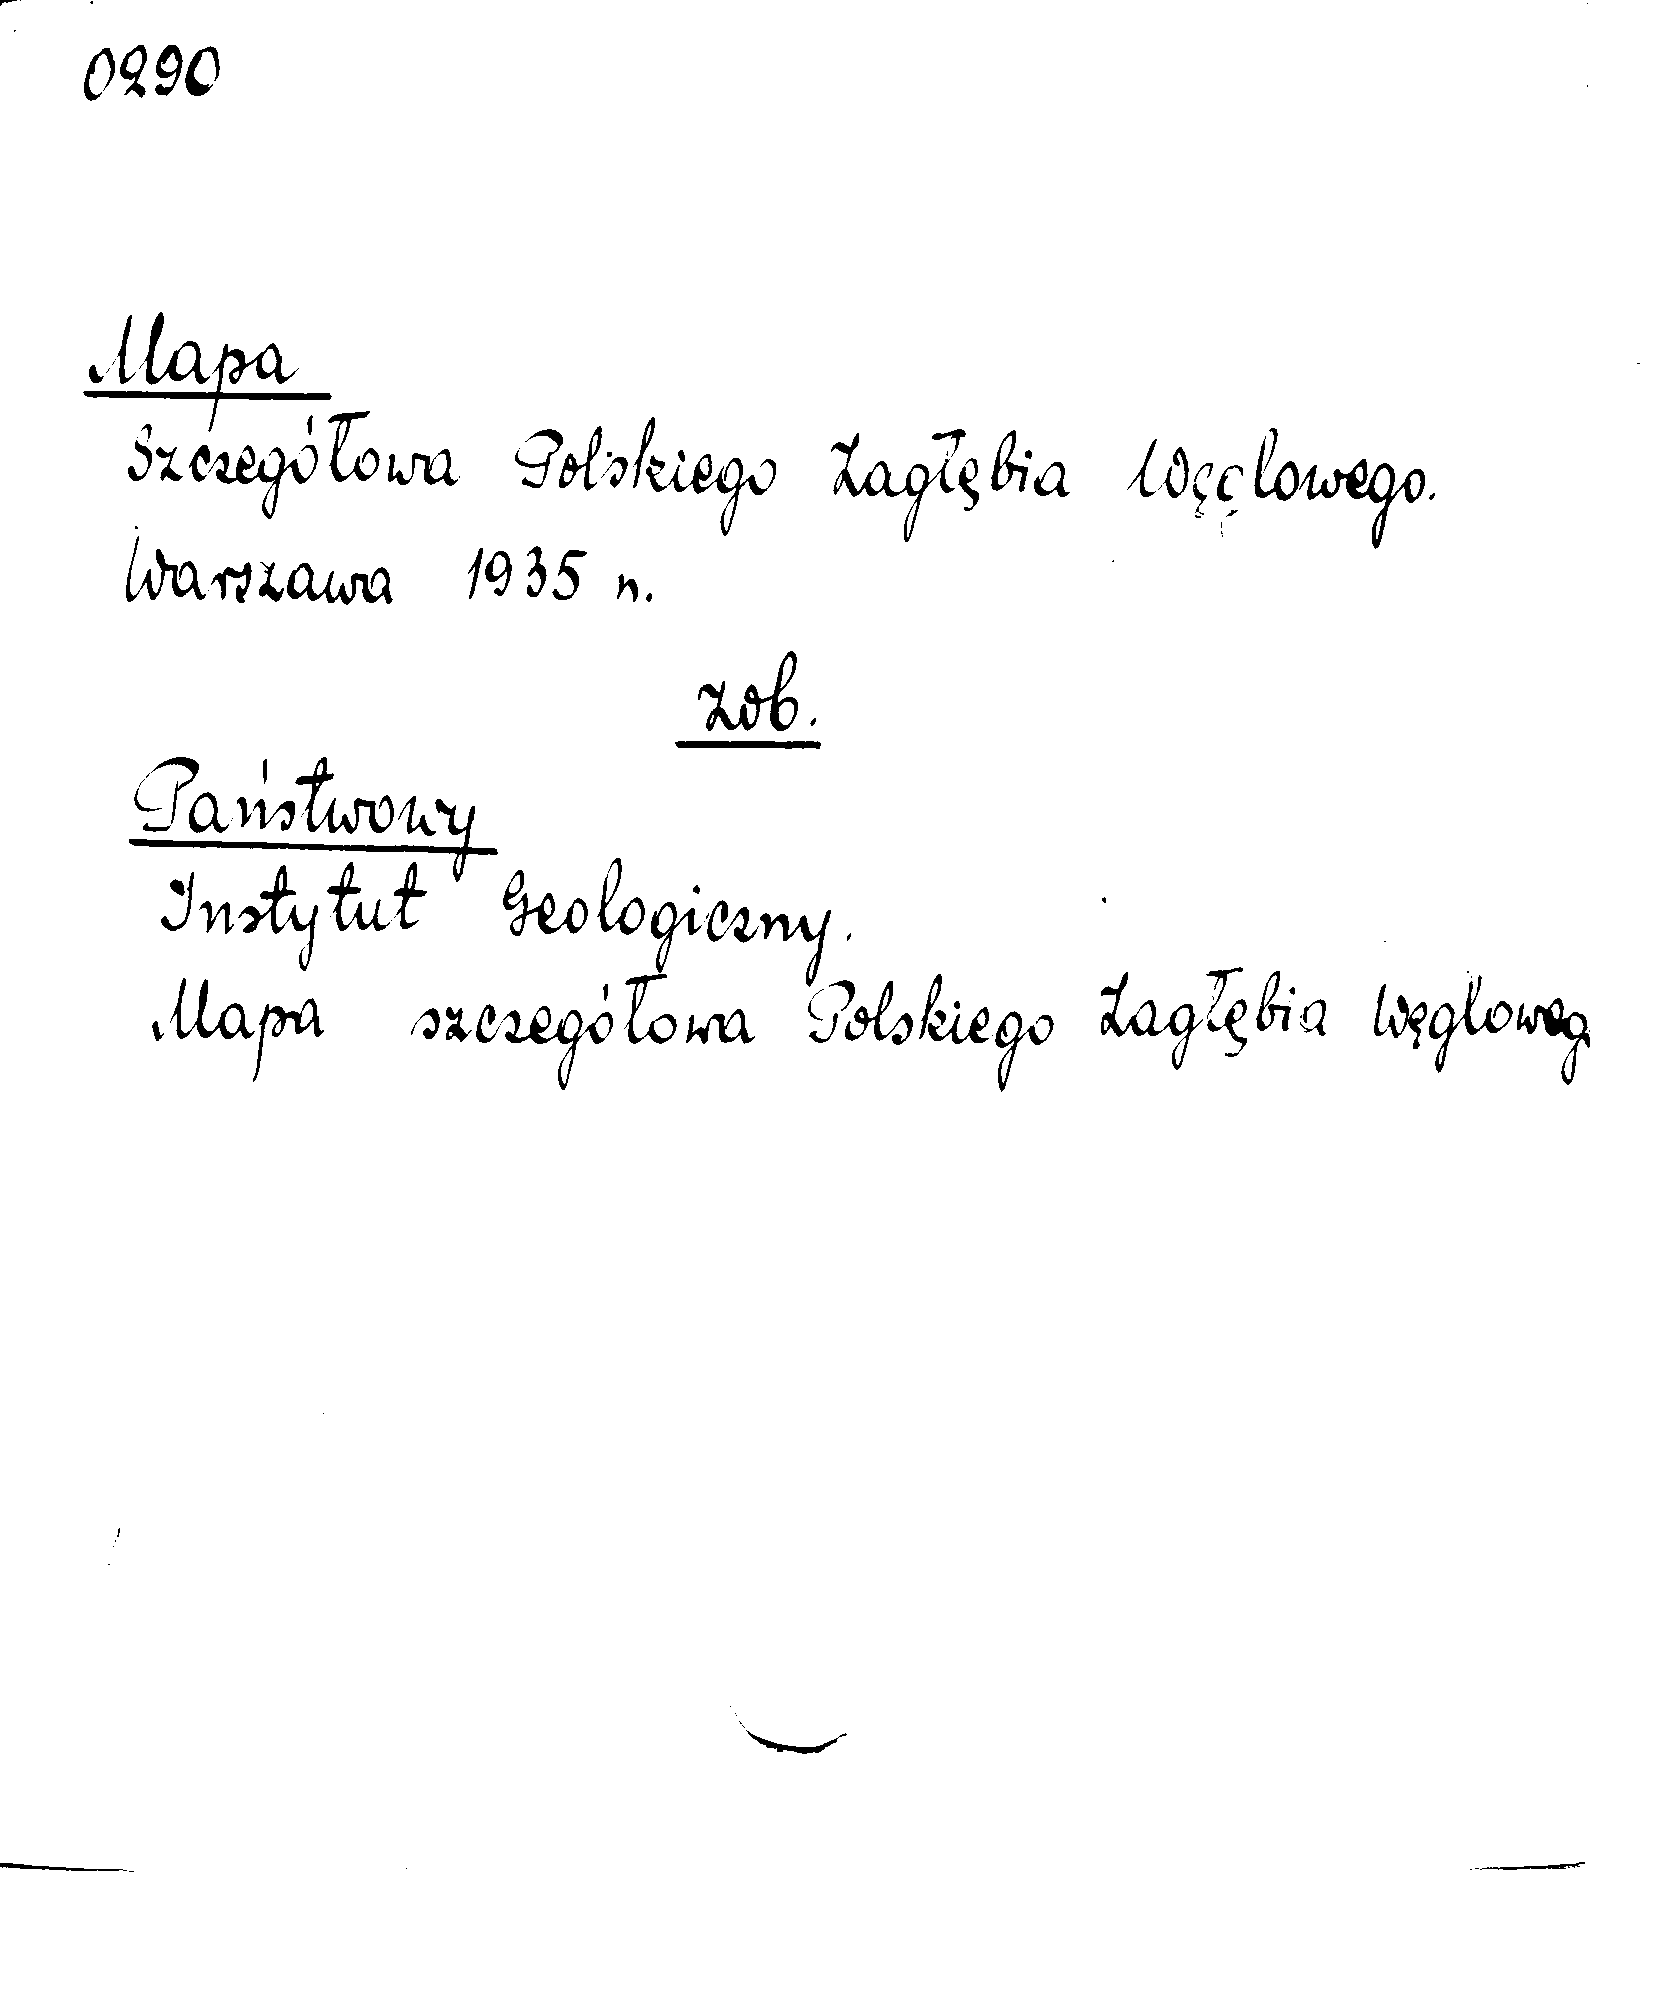 0290
Mapa
Szczegółowa Polskiego Zagłębia Węglowego.
Warszawa 1935 n.
zob.
Państwowy
Instytut Geologiczny.
Mapa szczegółowa Polskiego Zagłębia Węgloweg